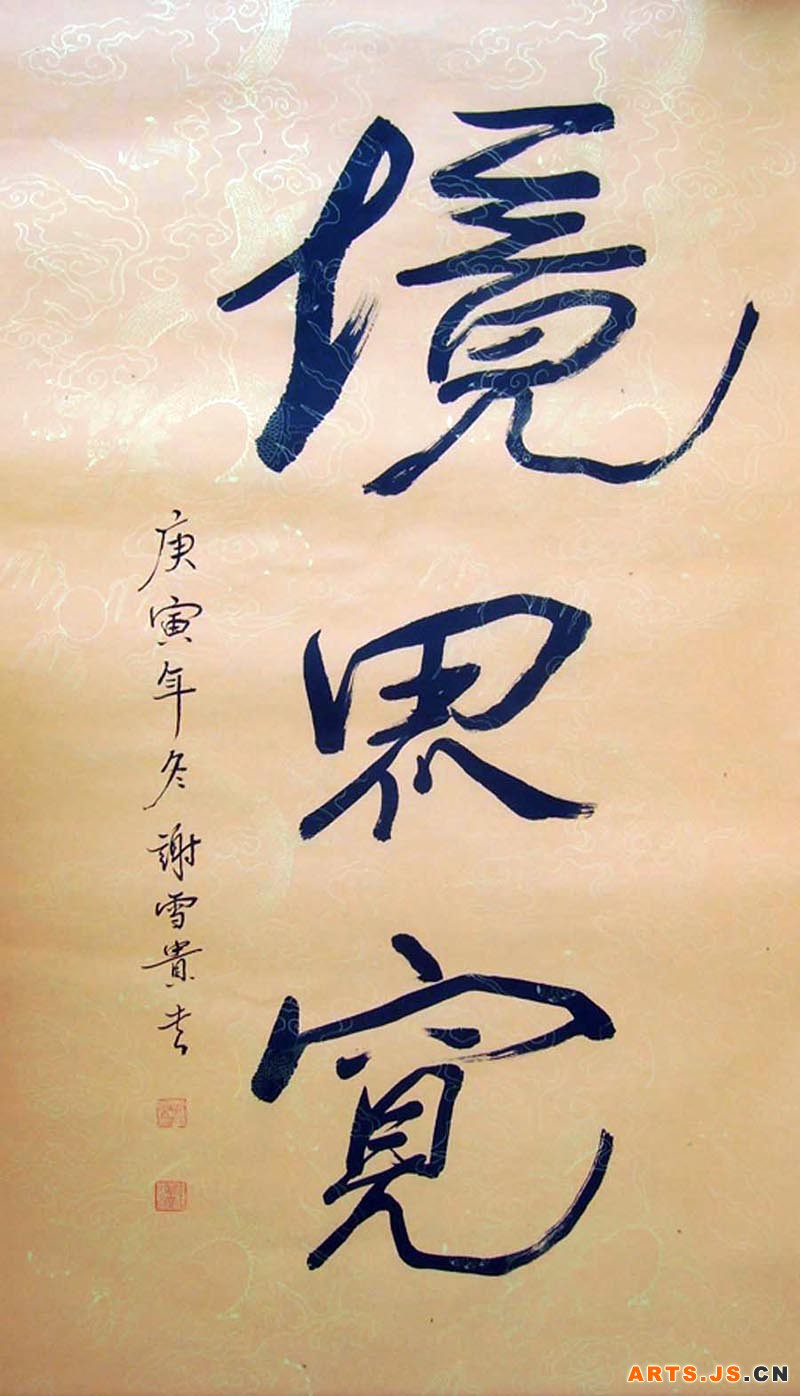 境界寬
庚寅年冬謝雪貴书
ARTS.JS.CN